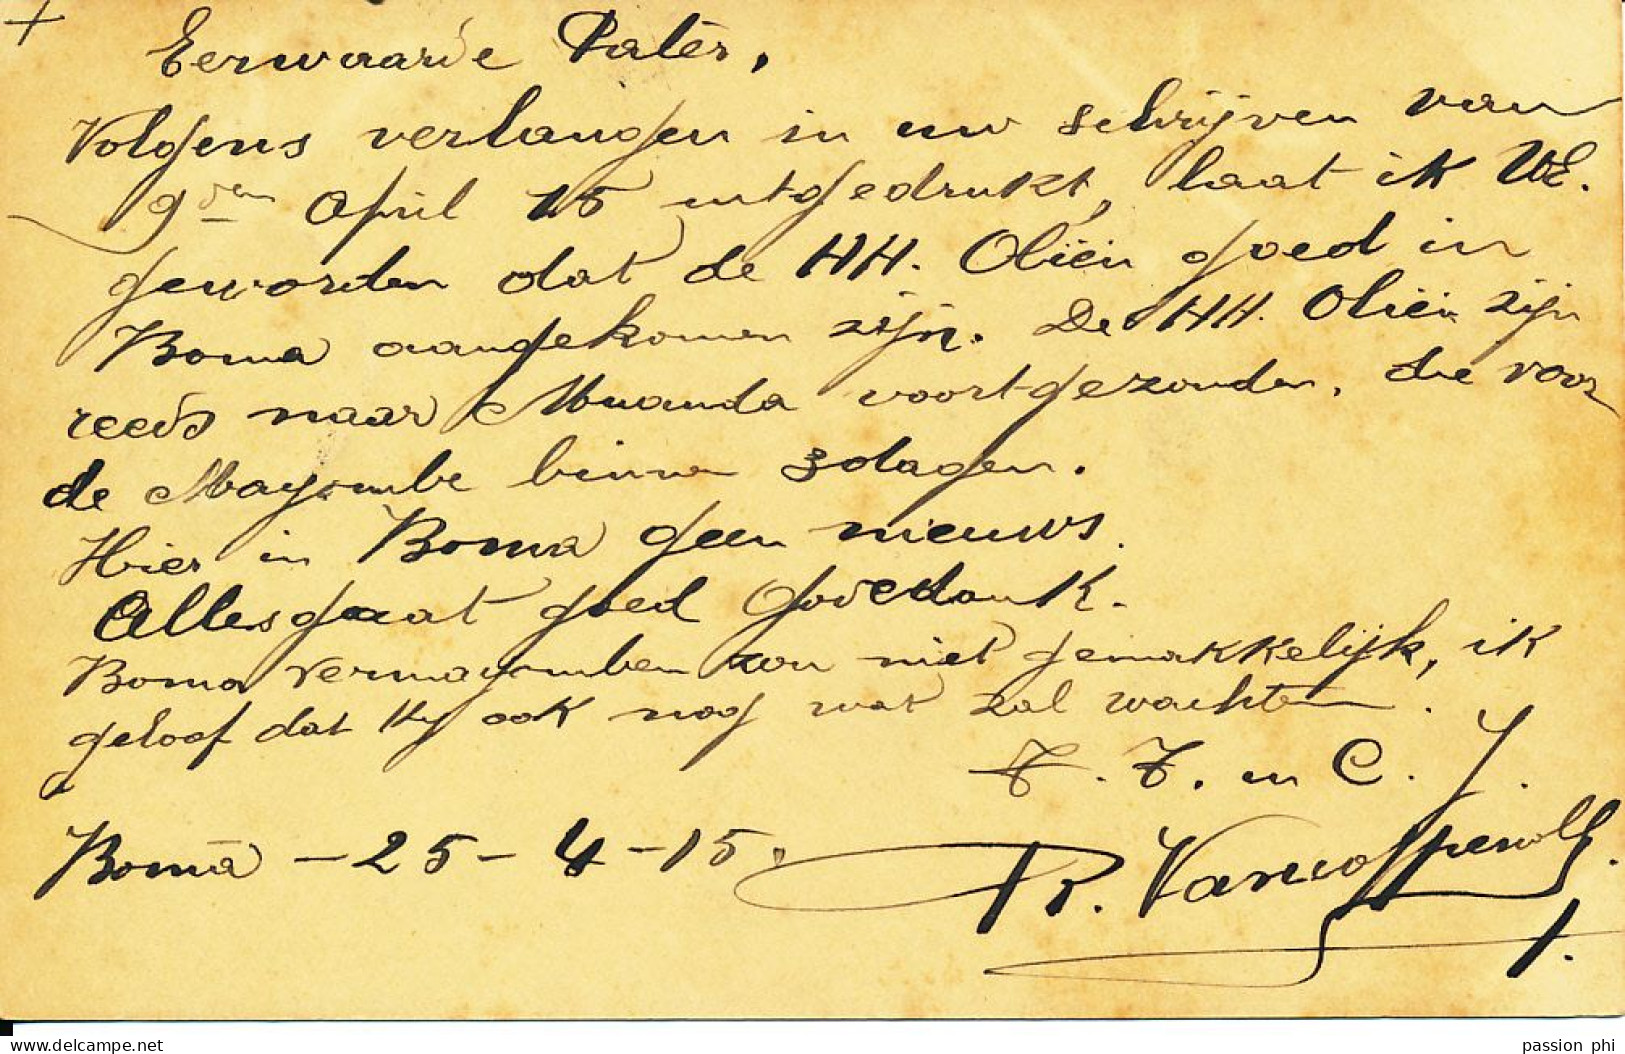 +
Eerwaarde Pater,
Volgens verlangen in uw schrijven van
9den April 15 uitgedrukt, laat ik UE.
geworden dat de HH. Oliën goed in
Boma aangekomen zijn. De HH. Oliën zijn
reeds naar Moanda voortgezonden, die voor
de Mayombe binnen 3 dagen.
Hier in Boma geen nieuws.
Alles gaat goed Goddank.
Boma vermayomben zou niet gemakkelijk, ik
geloof dat hij ook nog wat zal wachten.
T. T. in C. J.
Boma - 25 - 4 - 15.
R.
delcampe.net
passion phi